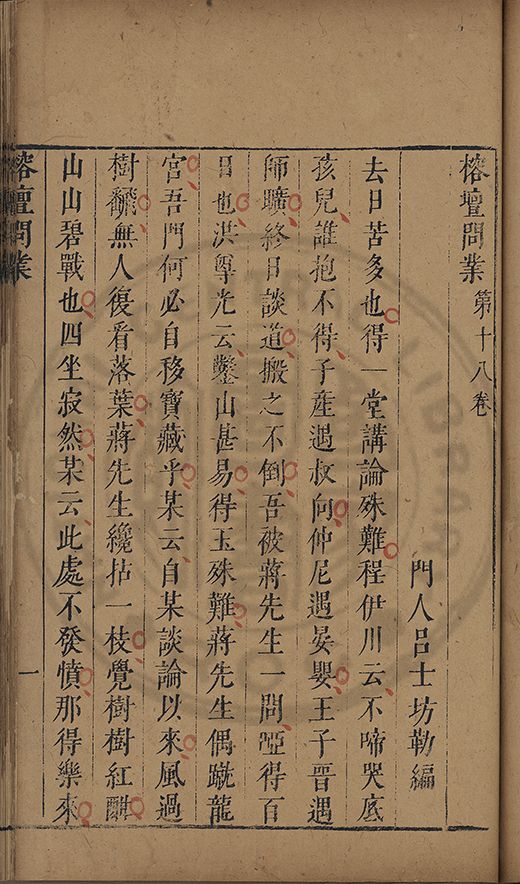 榕壇問業第十八卷
門人呂士坊勒編
去日苦多也得一堂講論殊難程伊川云不啼哭底
孩兒誰抱不得子產遇叔向仲尼遇晏嬰王子晉遇
師曠終日談道搬之不倒吾被蔣先生一問啞得百
日也洪羣光云鑿山甚易得玉殊難蔣先生偶蹴龍
宮吾門何必自移寶藏乎某云自某談論以來風過
樹飜無人復看落葉蔣先生纔拈一枝覺樹樹紅酣
山山碧戰也四坐寂然某云此處不發憤那得樂來
榕壇問業
一